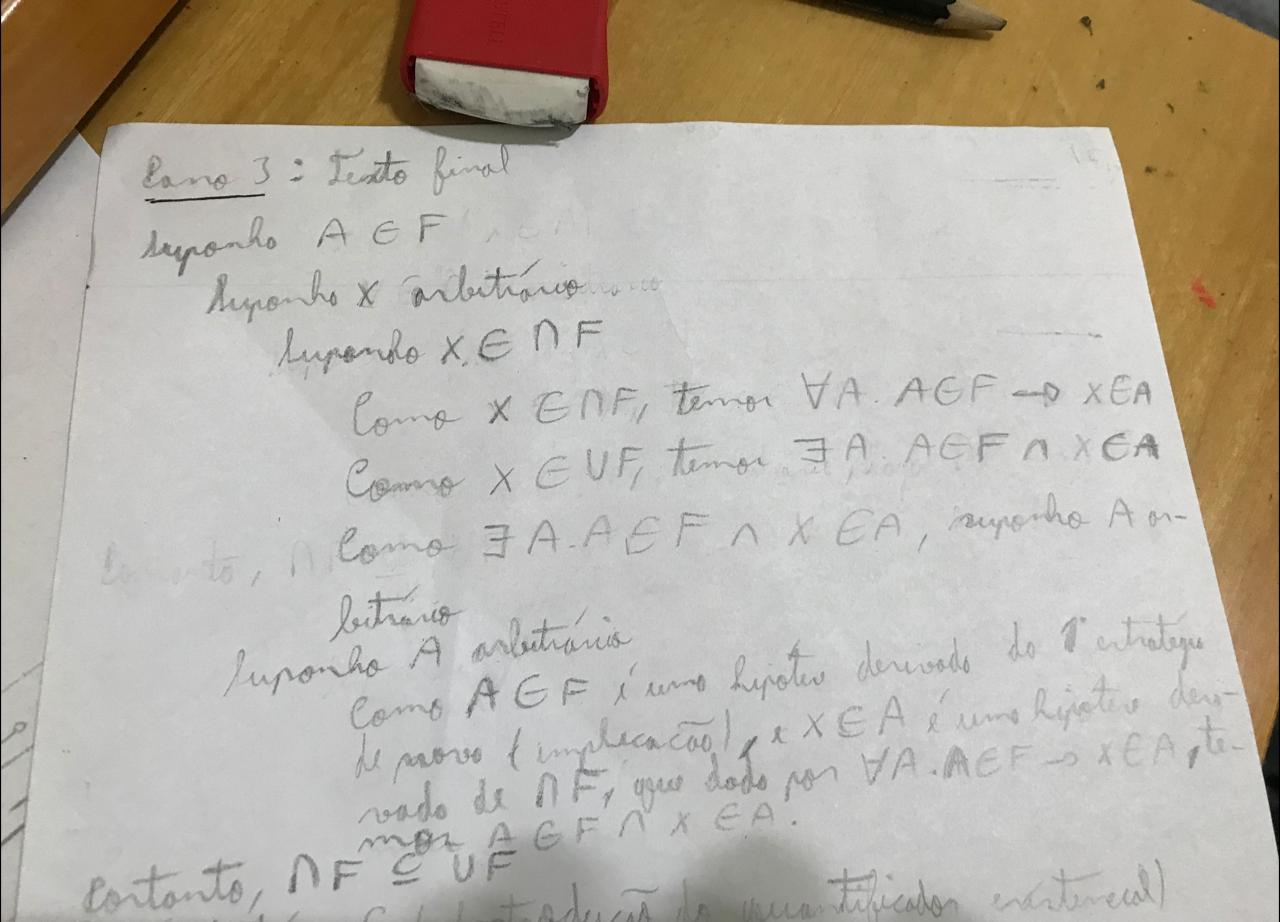 Caso 3: Texto final
Suponho A ∈ F
Suponho x arbitrário
Suponho x ∈ ∩F
Como x ∈ ∩F, temos ∀A. A∈F → x∈A
Como x ∈ ∪F, temos ∃A. A∈F ∧ x∈A
Como ∃A. A∈F ∧ x∈A, suponho A ar-
bitrário
Suponho A arbitrário
Como A∈F é uma hipótese derivada da 1ª estratégia
de prova (implicação), e x∈A é uma hipótese deri-
vada de ∩F, que dado por ∀A. A∈F → x∈A, te-
mos A∈F ∧ x∈A.
Portanto, ∩F ⊆ ∪F
introdução do quantificador existencial)